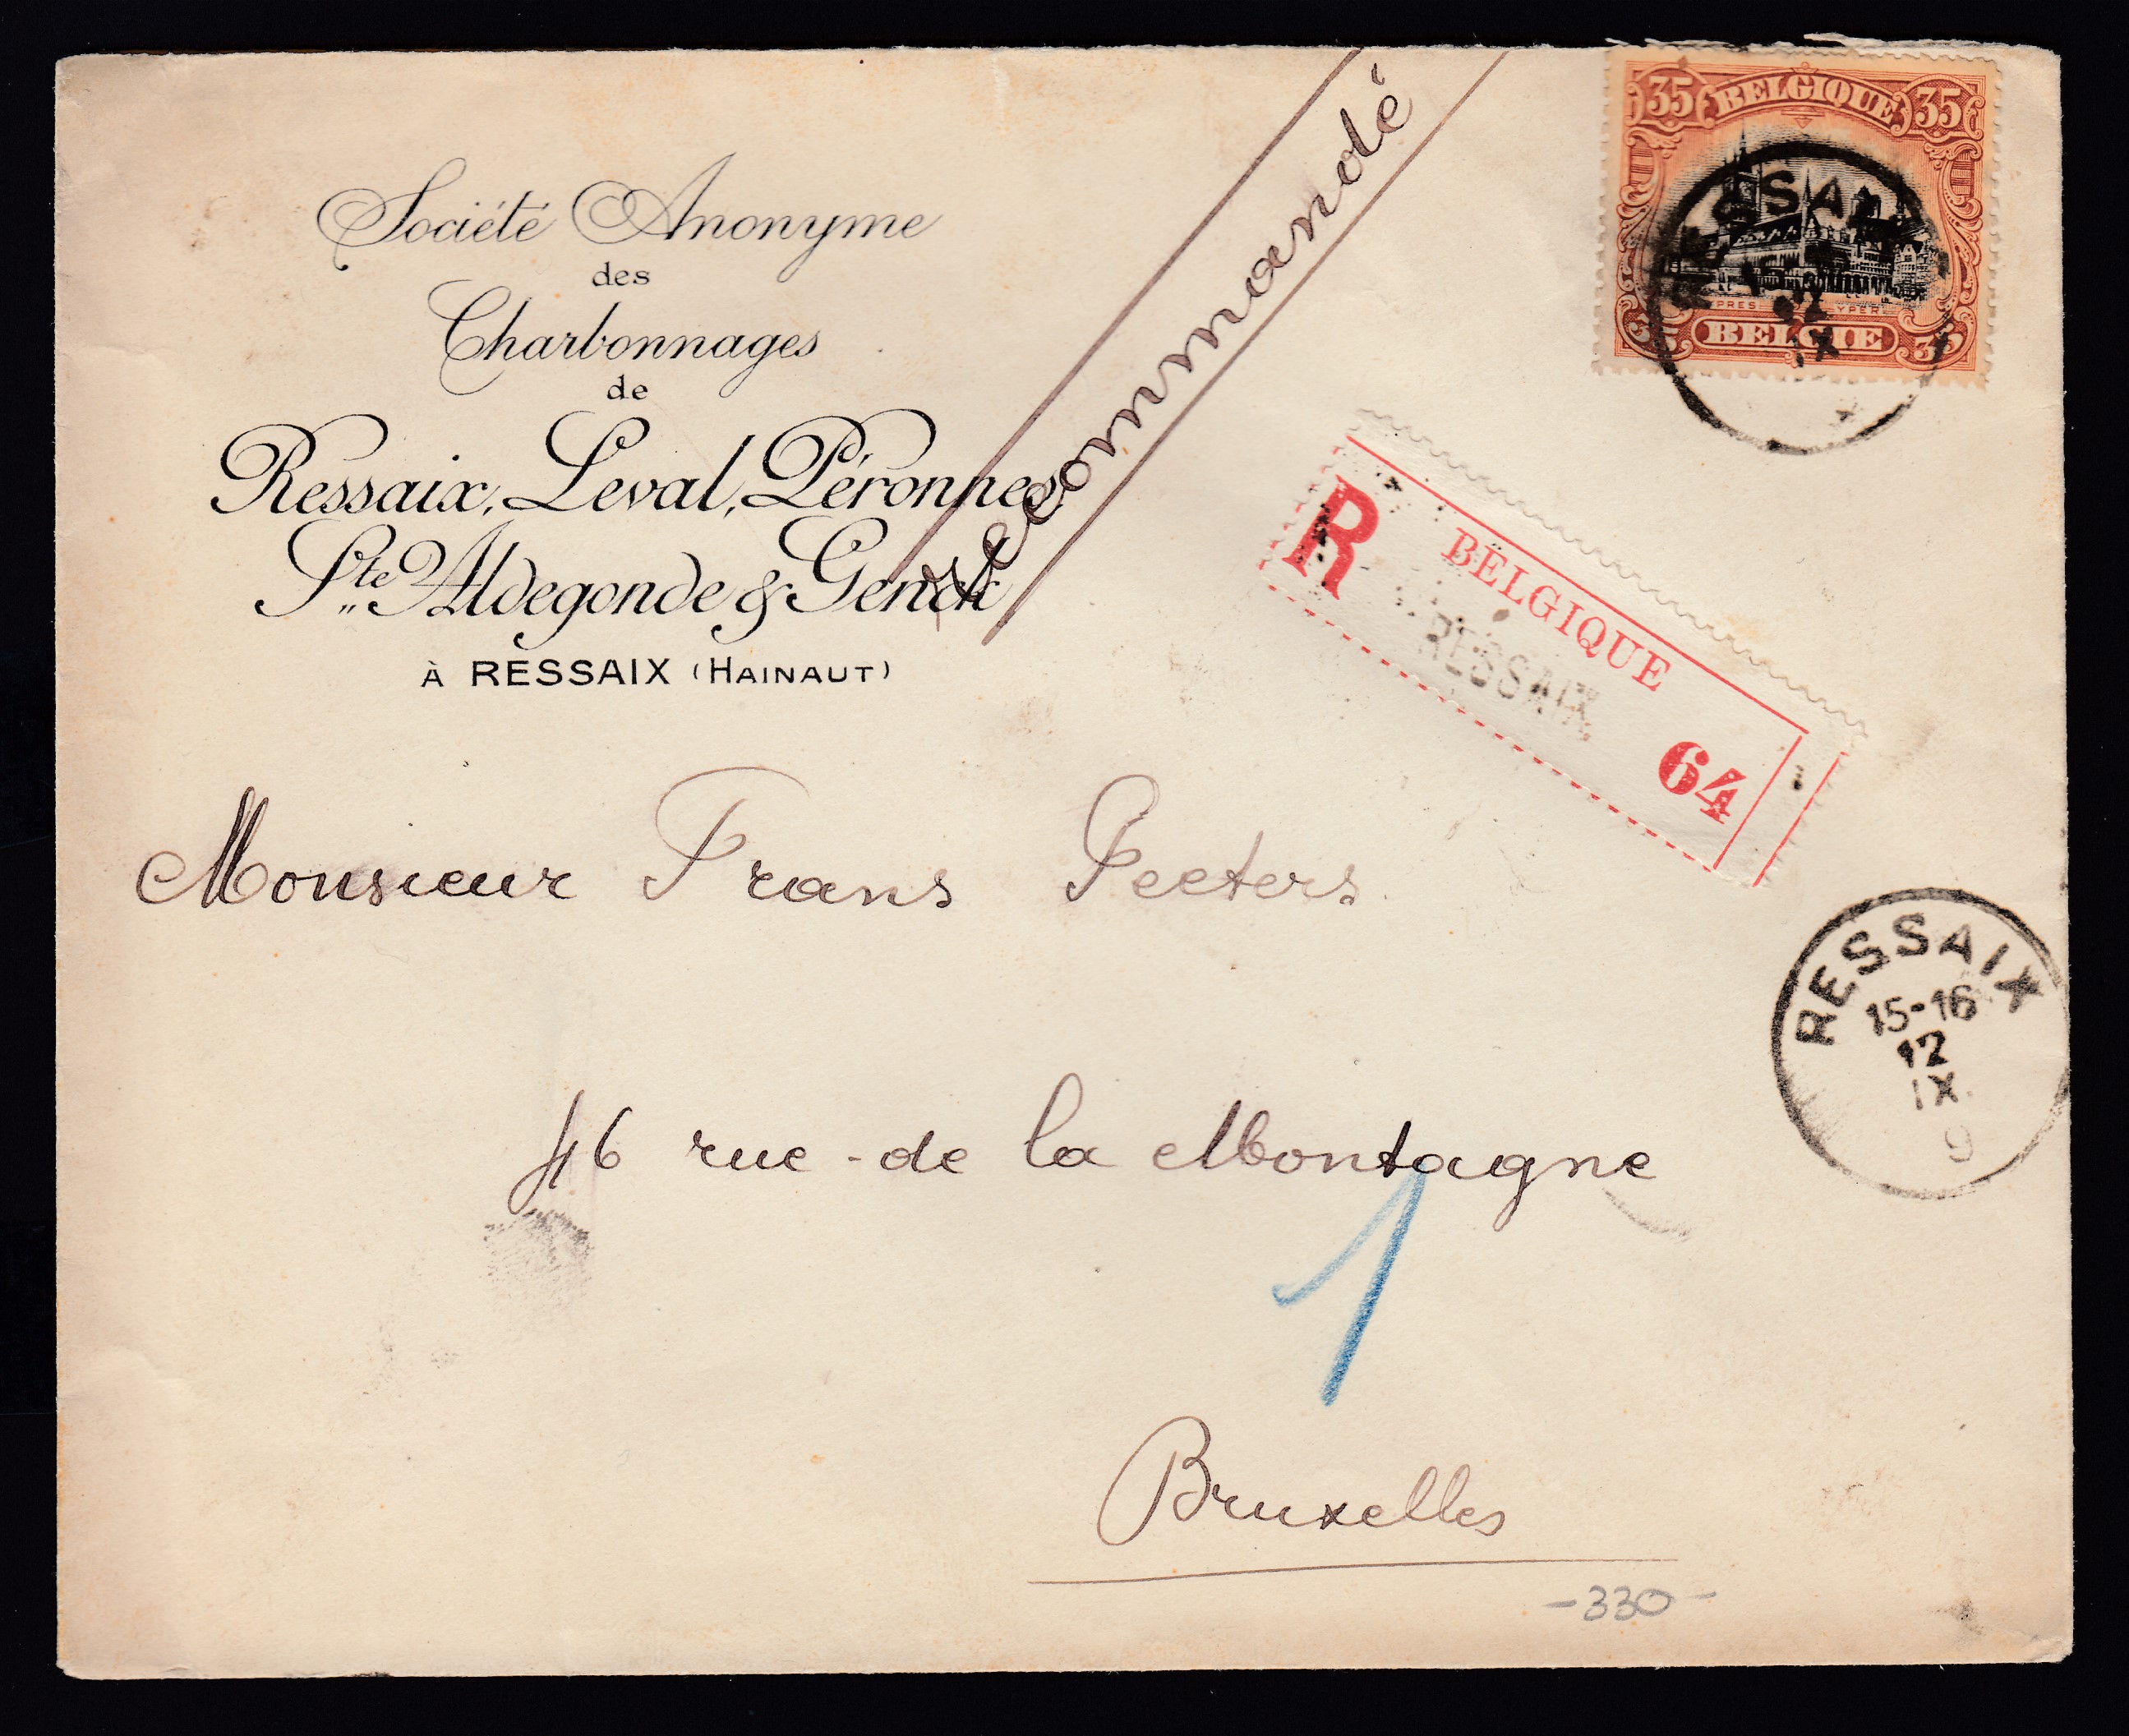 Société Anonyme
des
Charbonnages
de
Ressaix, Leval, Péronnes
Ste Aldegonde & Genck
À RESSAIX (HAINAUT)
Recommandé
35 BELGIQUE 35
RESSAIX
IX
YPRES YPER
35 BELGIË 35
R BELGIQUE
RESSAIX
64
Monsieur Frans Peeters
RESSAIX
15-16
12
IX
9
46 rue de la Montagne
1
Bruxelles
-330-